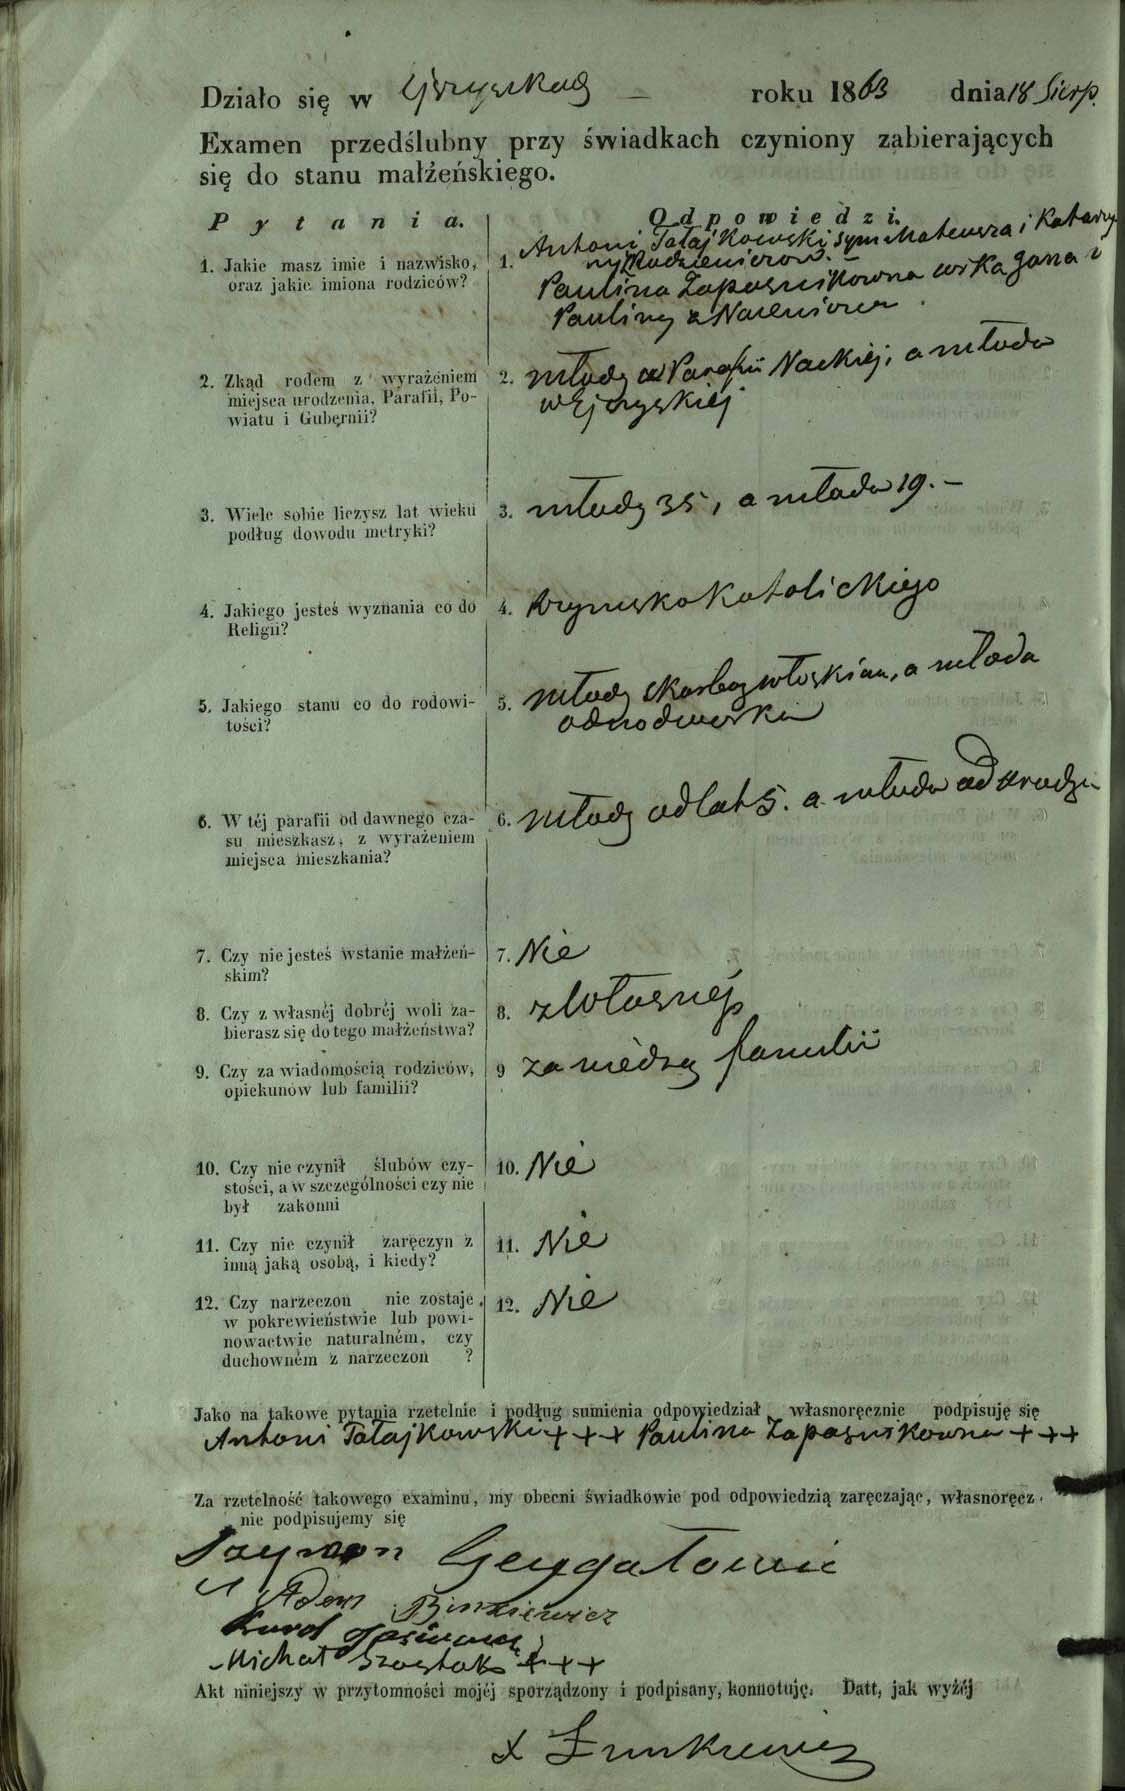 Działo się w Ejszyszkach — roku 1863 dnia 18 Sierp.
Examen przedślubny przy świadkach czyniony zabierających
się do stanu małżeńskiego.
Pytania. Odpowiedzi.
1. Jakie masz imie i nazwisko,
oraz jakie imiona rodziców?
1. Antoni Tałajkowski, syn Mateusza i Katarzy
ny
Paulina Zapaśnikowna córka Jana i
Pauliny z
2. Zkąd rodem z wyrażeniem
miejsca urodzenia, Parafii, Po-
wiatu i Gubernii?
2. młody w Parafii Nackiej, a młoda
w Ejszyskiej
3. Wiele sobie liczysz lat wieku
podług dowodu metryki?
3. młody 35, a młada 19. —
4. Jakiego jesteś wyznania co do
Religii?
4. Rzymsko Katolickiego
5. Jakiego stanu co do rodowi-
tości?
5. młody skarbowy włoskian, a młoda
odnodworka
6. W téj parafii od dawnego cza-
su mieszkasz, z wyrażeniem
miejsca mieszkania?
6. młody od lat 5. a młoda od urodze
7. Czy nie jesteś wstanie małżeń-
skim?
7. Nie
8. Czy z własnéj dobréj woli za-
bierasz się do tego małżeństwa?
8. z Własnej
9. Czy za wiadomością rodziców,
opiekunów lub familii?
9 za wiedzą familii
10. Czy nie czynił ślubów czy-
stości, a w szczególności czy nie
był zakonni
10. Nie
11. Czy nie czynił zaręczyn z
inną jaką osobą, i kiedy?
11. Nie
12. Czy narzeczon nie zostaje
w pokrewieństwie lub powi-
nowactwie naturalném, czy
duchowném z narzeczon ?
12. Nie
Jako na takowe pytania rzetelnie i podług sumienia odpowiedział własnoręcznie podpisuję się
Antoni Tałajkowski +++ Paulina Zapaśnikowna +++
Za rzetelność takowego examinu, my obecni świadkowie pod odpowiedzią zaręczając, własnoręcz-
nie podpisujemy się
Szymon
Adam
Karol
Michał Szostak +++
Akt niniejszy w przytomności mojéj sporządzony i podpisany, konnotuję. Datt, jak wyżéj